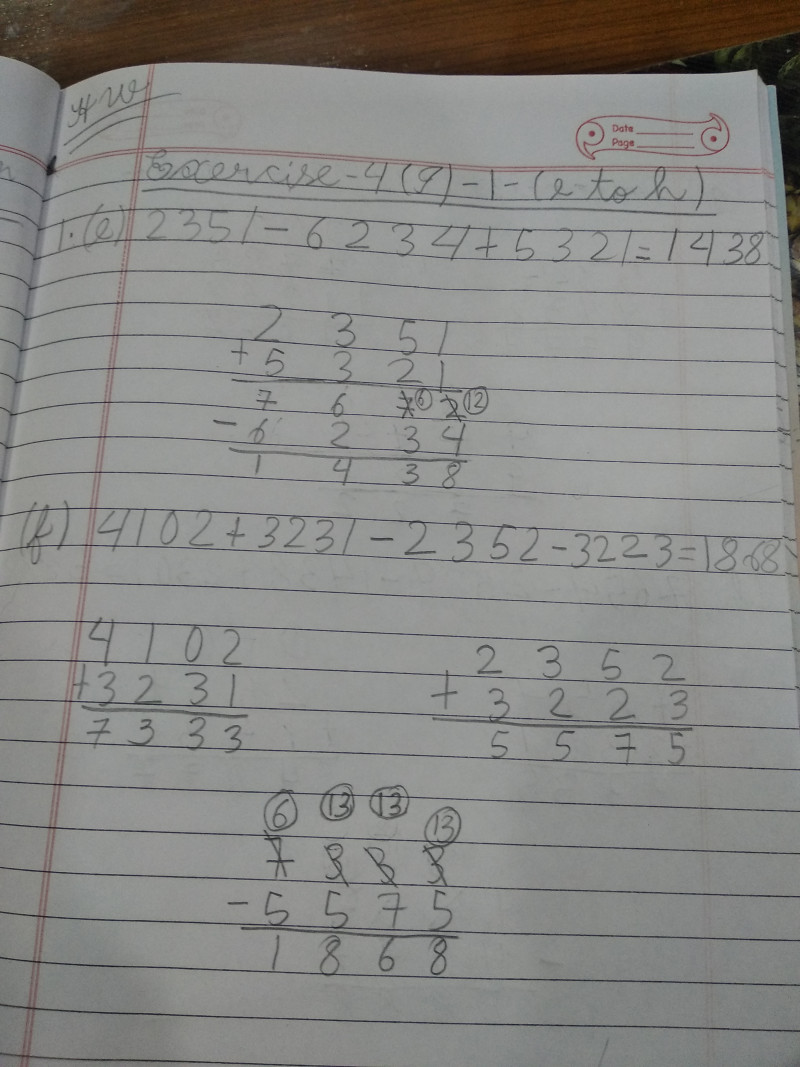 HW
Date
Page
Exercise-4(G)-1-(e to h)
1.(e) 2351-6234+5321=1438
2 3 5 1
+ 5 3 2 1
7 6 7 6 2 12
- 6 2 3 4
1 4 3 8
(f) 4102+3231-2352-3223=1868
4 1 0 2
+3 2 3 1
7 3 3 3
2 3 5 2
+ 3 2 2 3
5 5 7 5
6 13 13 13
7 3 3 3
- 5 5 7 5
1 8 6 8